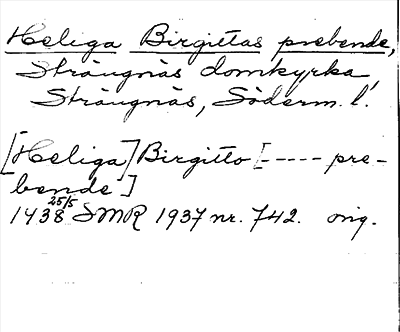 Heliga Birgittas prebende,
Strängnäs domkyrka,
Strängnäs, Söderm. l.
[Heliga] Birgitto [---- pre-
bende]
1438 25/5 SMR 1937 nr. 742. orig.